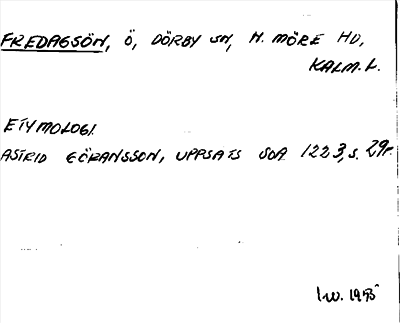 FREDAGSÖN, Ö, DÖRBY SN, N. MÖRE HD,
KALM. L.
ETYMOLOGI.
ASTRID GÖRANSSON, UPPSATS SOA 1223, S. 29F.
1955